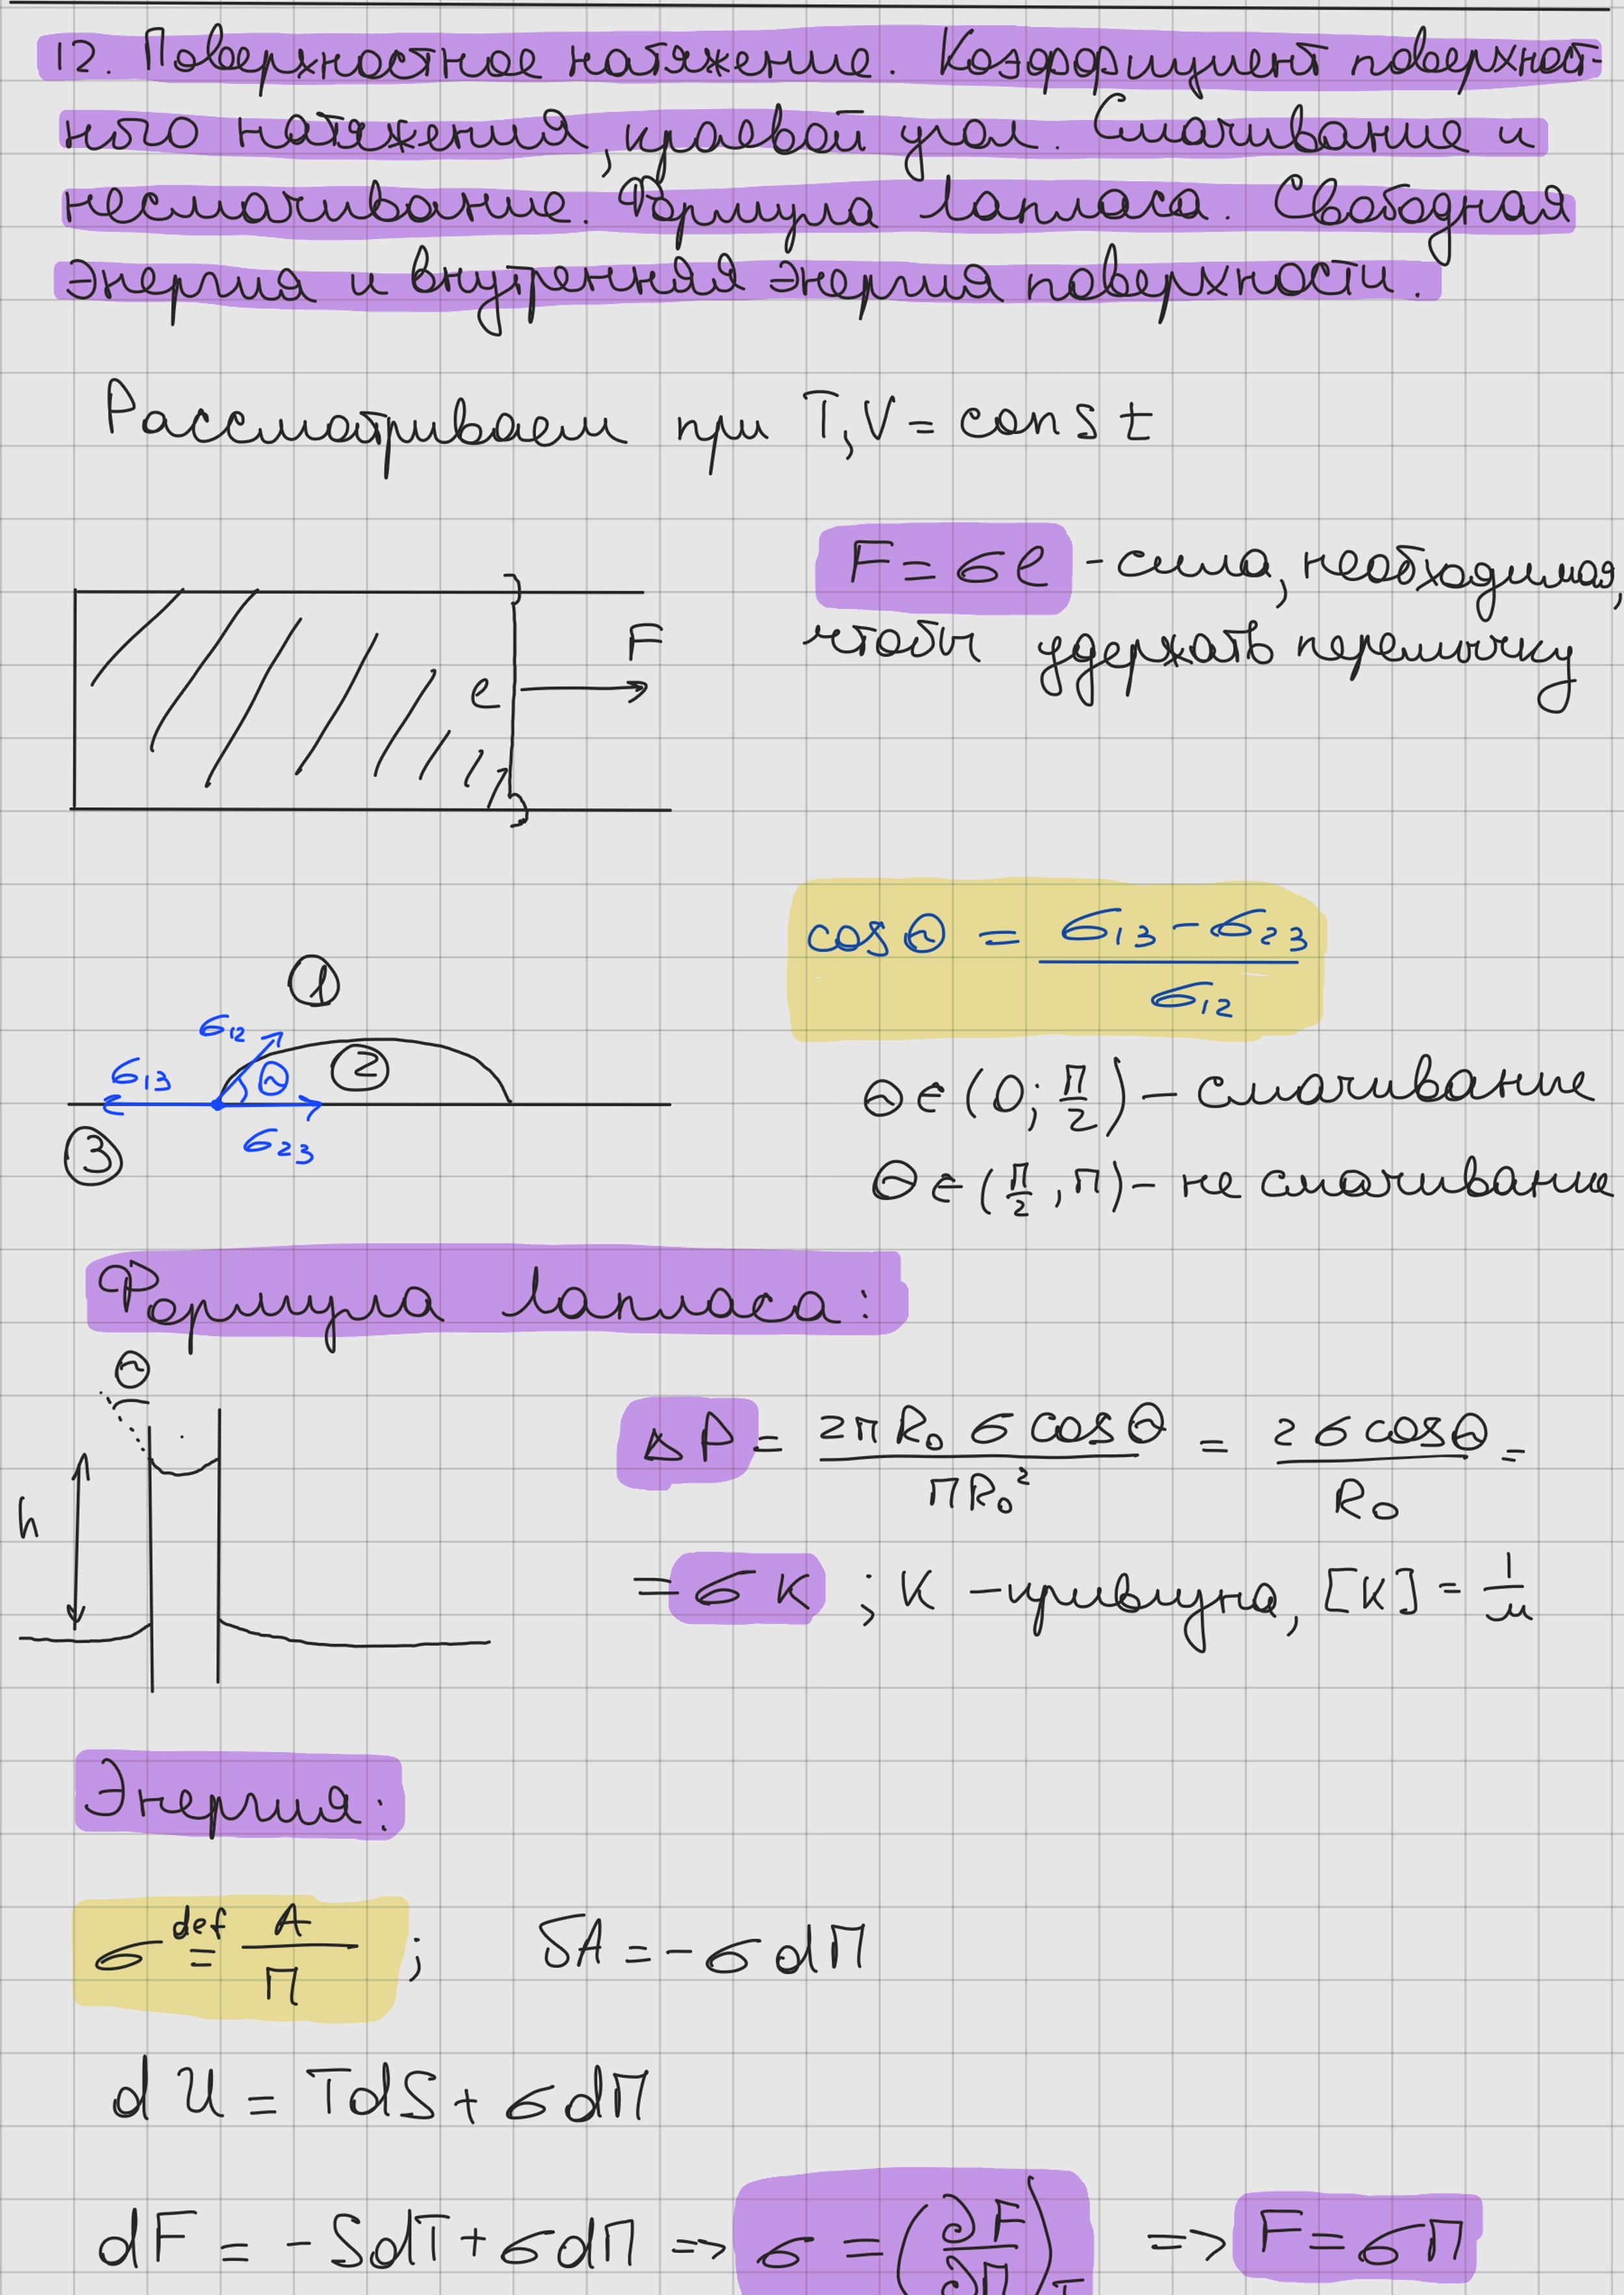 12. Поверхностное натяжение. Коэффициент поверхност-
ного натяжения, краевой угол. Смачивание и
несмачивание. Формула Лапласа. Свободная
энергия и внутренняя энергия поверхности.
Рассматриваем при T, V = const
F = σl - сила, необходимая,
чтобы удержать перемычку
F
l
cosΘ = (σ13 - σ23) / σ12
①
σ12
②
σ13
Θ
σ23
③
Θ ∈ (0; π/2) - смачивание
Θ ∈ (π/2, π) - не смачивание
Формула Лапласа:
Θ
h
ΔP = 2πR₀ σ cosΘ / πR₀² = 2σ cosΘ / R₀ =
= σK ; K - кривизна, [K] = 1/м
Энергия:
σ def= A/П ; δA = -σdП
dU = TdS + σdП
dF = -SdT + σdП => σ = (∂F/∂П)T => F = σП